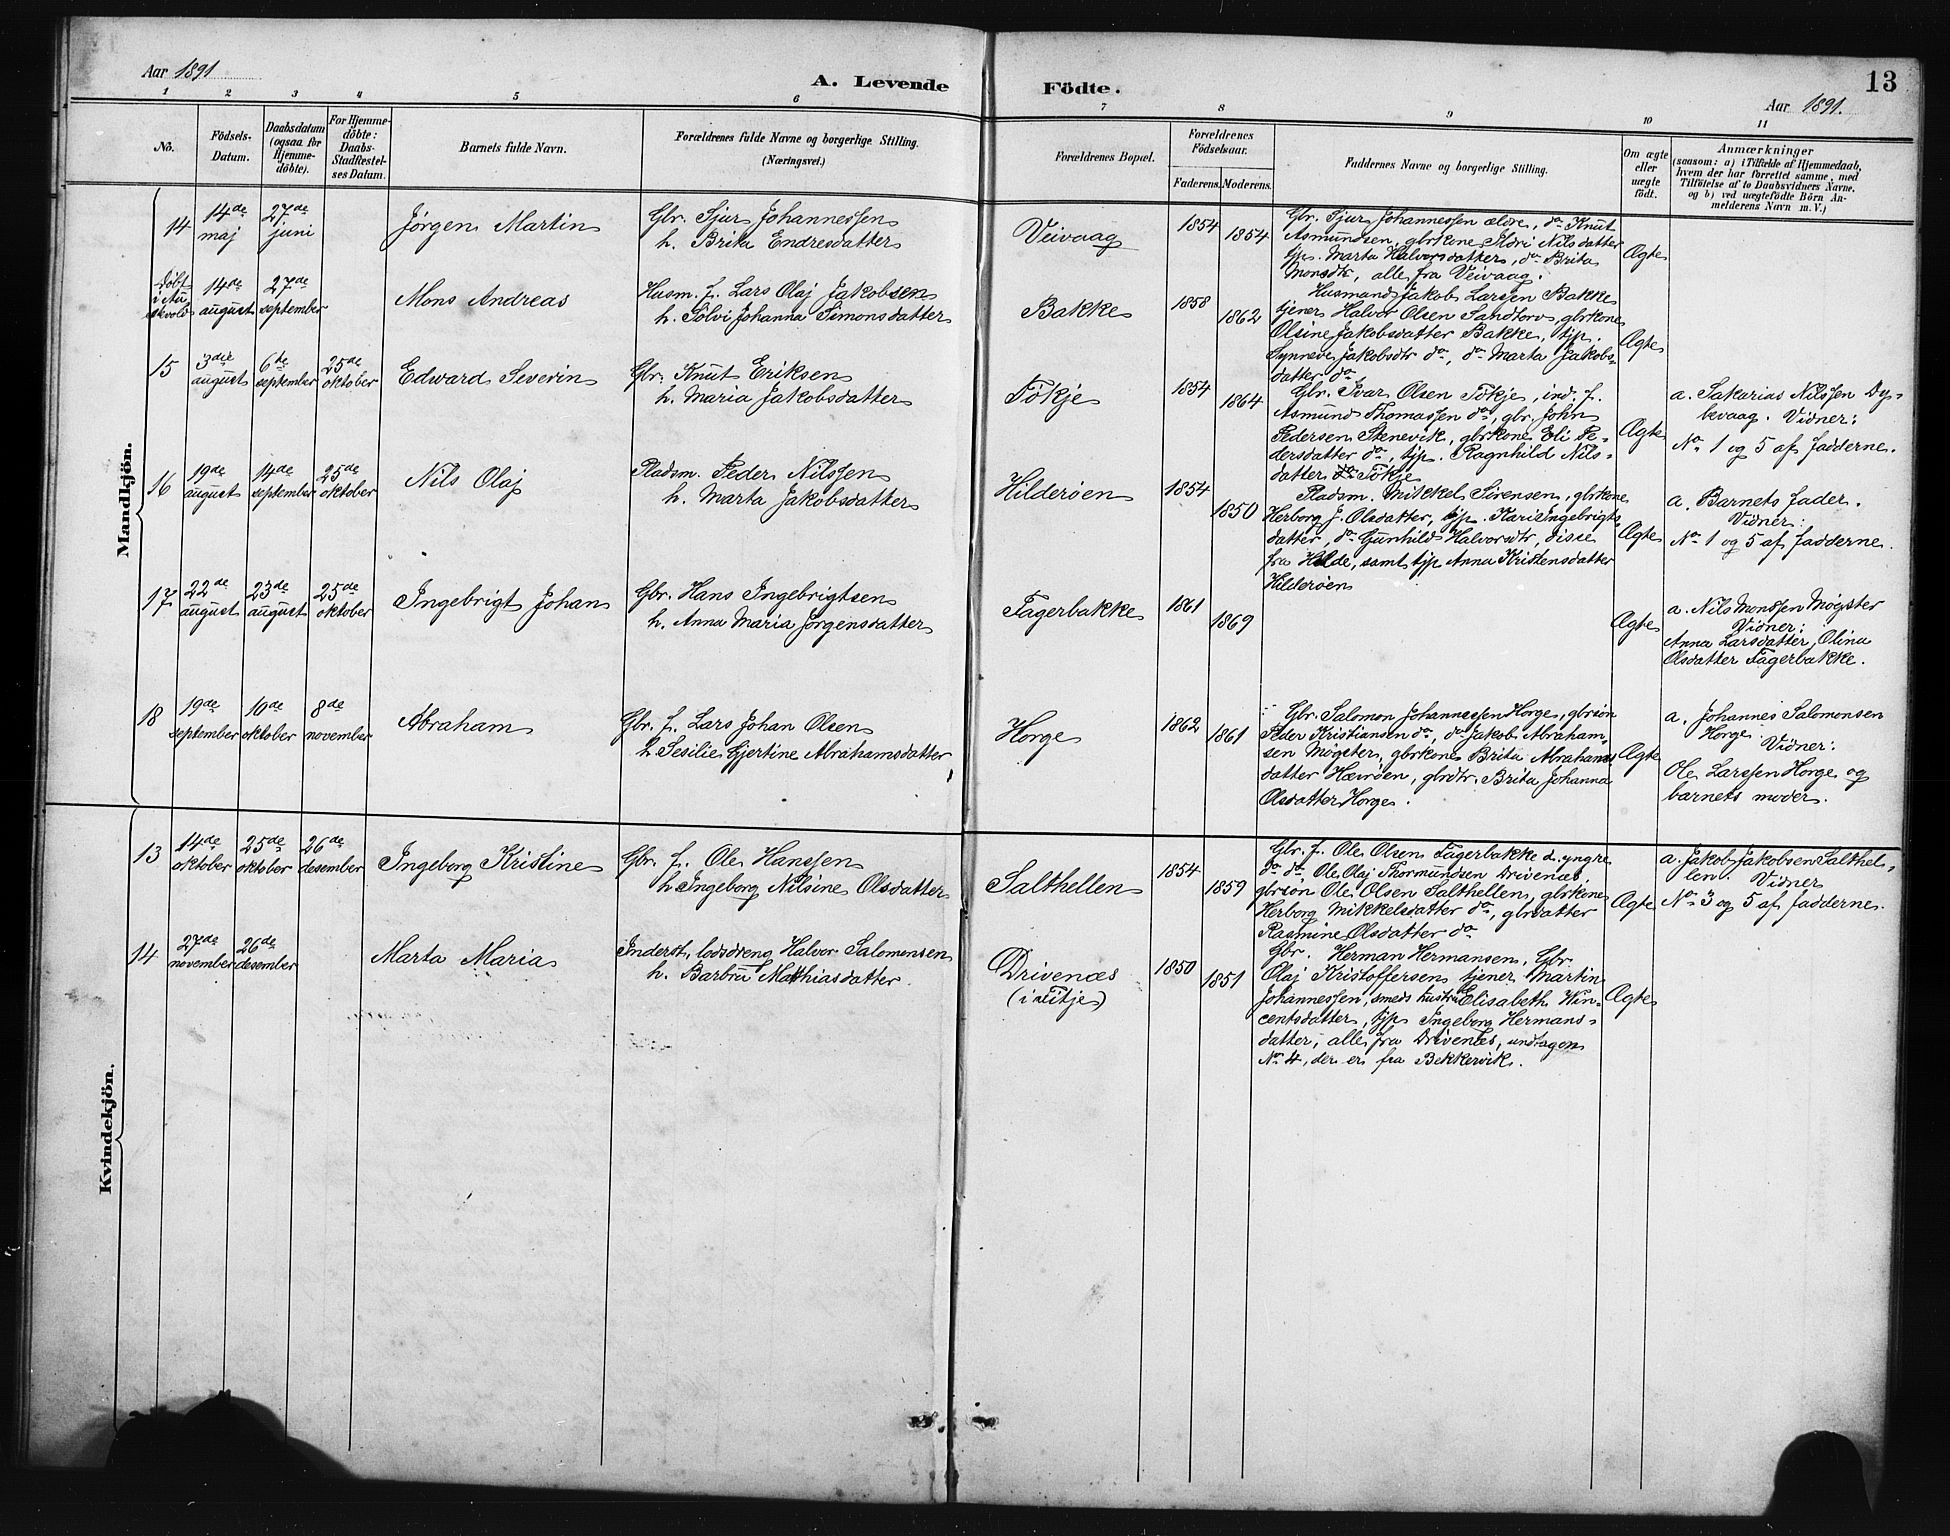 Aar 1891
A. Levende
Födte.
13
Aar 1891.
1 2 3 4 5 6 7 8 9 10 11
No.
Födsels-
Datum.
Daabsdatum
(ogsaa for
Hjemme-
döbte).
For Hjemme-
döbte:
Daabs-
Stadfæstel-
ses Datum.
Barnets fulde Navn.
Forældrenes fulde Navne og borgerlige Stilling.
(Næringsvei.)
Forældrenes Bopæl.
Forældrenes
Födselsaar.
Faderens. Moderens.
Faddernes Navne og borgerlige Stilling.
Om ægte
eller
uægte
födt.
Anmærkninger
(saasom: a) i Tilfælde af Hjemmedaab,
hvem der har forrettet samme, med
Tilföielse af to Daabsvidners Navne.
og b) ved uægtefödte Börn An-
melderens Navn m. V.)
Mandkjön.
14
14de
maj
27de
juni
Jørgen Martin
Gbr. Sjur Johannessen
h. Brita Endresdatter
Veivaag
1854
1854
Gbr. Sjur Johannessen ældre, do Knut
Asmundsen, gbrkone Ildri Nilsdatter
tjp. Marta Halvorsdatter, do Brita
Monsdtr, alle fra Veivaag.
Ægte
Døbt
i Au
skvold
14de
august
27de
september
Mons Andreas
Husm. f. Lars Olaj Jakobsen
h. Sølvi Johanna Simonsdatter
Bakke
1858
1862
Husmand Jakob Larsen Bakke
tjener Halvor Olsen Sandtorv, gbrkone
Olsine Jakobsdatter Bakke, tjp.
Synneve Jakobsdtr do, do Marta Jakobs-
datter do
Ægte
15
3die
august
6te
september
25de
oktober
Edward Severin
Gbr. Knut Eriksen
h. Maria Jakobsdatter
Tökje
1854
1864
Gbr. Ivar Olsen Tökje, ind. f.
Asmund Thomassen do, gbr. John
Pedersen Stenevik, gbrkone Eli Pe-
dersdatter do, tjp. Ragnhild Nils-
datter do Tökje
Ægte
a. Sakarias Nilssen Dy-
kevaag. Vidner:
No 1 og 5 af fadderne.
16
19de
august
14de
september
25de
oktober
Nils Olaj
Pladsm. Peder Nilssen
h. Marta Jakobsdatter
Hilderøen
1854
1850
Pladsm. Mikkel Sörensen, gbrkone
Herborg J. Olsdatter, tjp. Kari Ingebrigts-
datter, do Gunhild Halvorsdtr, disse
fra Hilde, samt tjp Anna Kristensdatter
Hilderøen
Ægte
a. Barnets fader.
Vidner:
No 1 og 5 af fadderne.
17
22de
august
23de
august
25de
oktober
Ingebrigt Johan
Gbr. Hans Ingebrigtsen
h. Anna Maria Jørgensdatter
Fagerbakke
1861
1869
Ægte
a. Nils Monssen Møgster
Vidner:
Anna Larsdatter, Olina
Olsdatter Fagerbakke.
18
19de
september
10de
oktober
8de
november
Abraham
Gbr. f. Lars Johan Olsen
h. Sesilie Gjertine Abrahamsdatter
Horge
1862
1861
Gbr. Salomon Johannessen Horge, gbrsøn
Peder Kristiansen do, do Jakob Abraham-
sen Møgster, gbrkone Brita Abrahams
datter Hærøen, gbrdtr. Brita Johanna
Olsdatter Horge.
Ægte
a. Johannes Salomonsen
Horge. Vidner:
Ole Larssen Horge og
barnets moder.
Kvindekjön.
13
14de
oktober
25de
oktober
26de
desember
Ingeborg Kristine
Gbr. f. Ole Hanssen
h Ingeborg Nilsine Olsdatter
Salthellen
1854
1859
Gbr. f. Ole Olsen Fagerbakke d. yngre
do do Ole Olaj Thormundsen Drivenæs,
gbrsøn Ole Olsen Salthellen, gbrkone
Herborg Mikkelsdatter do, gbrdatter
Rasmine Olsdatter do
Ægte
a. Jakob Jakobsen Salthel-
len. Vidner
No 3 og 5 af fadderne.
14
27de
november
26de
desember
Marta Maria
Inderst, lodsdreng Halvor Salomonsen
h. Barbru Matthiasdatter.
Drivenæs
(i Fitje)
1850
1851
Gbr. Herman Hermansen, Gbr
Olaj Kristoffersen, tjener Martin
Johannessen, smeds hustru Elisabeth Win-
centsdatter, tjp Ingeborg Hermans-
datter, alle fra Drivenæs, undtagen
No 4, der er fra Bekkervik.
Ægte